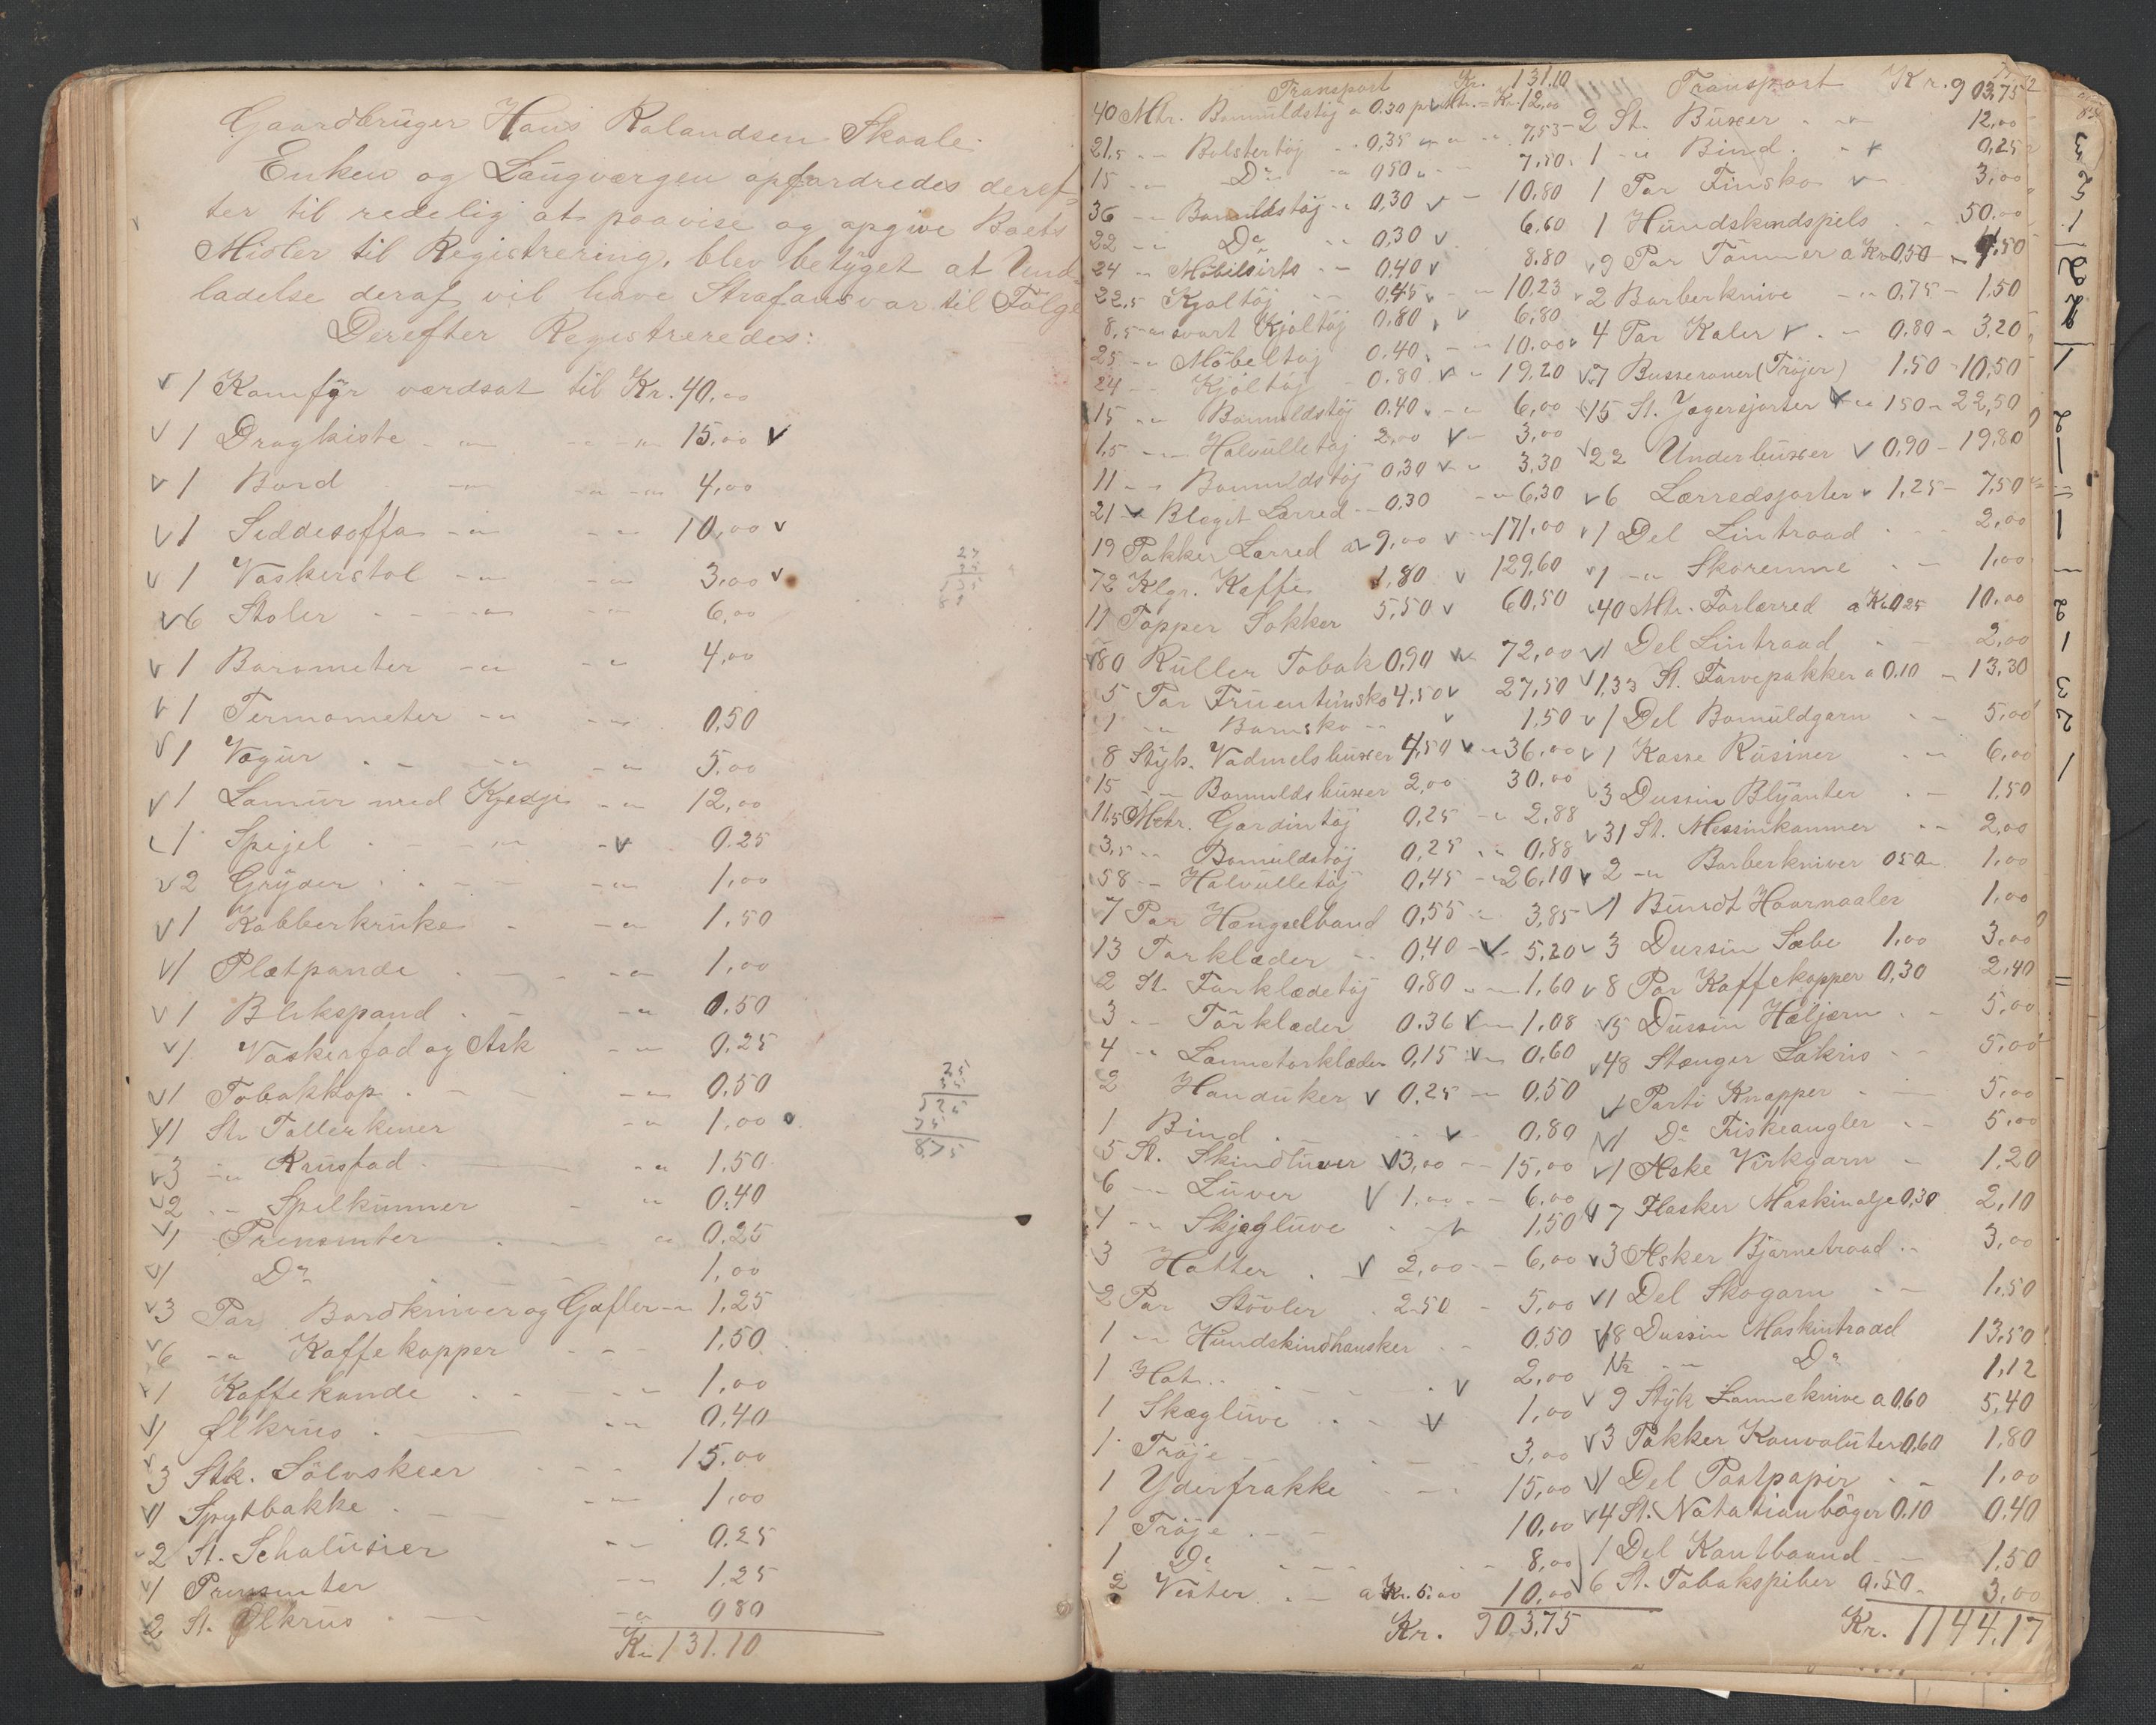 Gaardbruger Hans Rolandsen Skaale.
Enken og Laugværgen opfordredes deref-
ter til redelig at paavise og opgive Boets
Midler til Registrering, blev betyget at Und-
ladelse deraf vil have Strafansvar til Følge
Derefter Registreredes:
1 Komfyr værdsat til Kr. 40,00
1 Dragkiste 15,00
1 Bord 4,00
1 Siddesoffa 10,00
1 Vaskerstol 3,00
6 Stoler 6,00
1 Barometer 4,00
1 Termometer 0,50
1 Vægur 5,00
1 Lomur med Kjædje 12,00
1 Spejel 0.25
2 Gryder 1,00
1 Kobberkruke 1,50
1 Plætpande 1,00
1 Blekspand 0.50
1 Vaskerfad og Ask 0,25
1 Tobakkop 0,50
1 St. Tallerkener 1,00
3 Krusfad 1,50
2 Spelkummer 0,40
1 Presenter 0,25
1 Do 1,00
3 Par Bordkniver og Gafler 1,25
6 Kaffekopper 1,50
1 Kaffekande 1,00
1 Ølkrus 0,40
3 Stk. Sølvskeer 15,00
1 Spytbakke 1,00
2 St. Schalusier 0,25
1 Presenter 1,25
2 St. Ølkrus 0 80
Kr. 131.10
Transport Kr. 131.10
40 Mtr. Bomuldstøj a 0.30 pr Mtr. = Kr. 12,00
21,5 Bolstertøj 0,35 7,53
15 Do 0 50 7,50
36 Bomuldstøj 0,30 10,80
22 Do 0,30 6,60
24 Möbilsirts 0,40 8.80
22,5 Kjoltøj 0,45 10,23
8,5 svart Kjoltøj 0,80 6,80
25 Møbeltøj 0.40 10.00
24 Kjoltøj 0.80 19,20
15 Bomuldstøj 0.40 6,00
1,5 Halvulletøj 2,00 3,00
11 Bomuldstøj 0,30 3,30
21 Bleget Lærred 0,30 6,30
19 Pakker Lærred a 9,00 171,00
72 Klgr. Kaffe 1,80 129,60
11 Topper Sokker 5,50 60,50
80 Ruller Tobak 0,90 72,00
5 Par Fruentimsko 4,50 27,50
1 Barnsko 1,50
8 Styk. Vadmelsbuxer 4,50 36,00
15 Bomuldsbuxer 2,00 30,00
11,5 Mtr. Gardintøj 0,25 2,88
3,5 Bomuldstøj 0,25 0,88
58 Halvulletøj 0,45 26,10
7 Par Hængselbaand 0,55 3,85
13 Forklæder 0,40 5,20
2 St. Forklædetøj 0,80 1,60
3 Törklæder 0.36 1,08
4 Lommetorklæder 0,15 0,60
2 Handuker 0,25 0,50
1 Bind 0,80
5 St. Skindluver 3,00 15,00
6 Luver 1,00 6,00
1 Skjægluve 1,50
3 Hatter 2,00 6,00
2 Par Støvler 2.50 5,00
1 Hundskindhansker 0,50
1 Hat 2,00
1 Skægluve 1,00
1 Trøje 3,00
1 Yderfrakke 15,00
1 Trøje 10,00
1 Do 8,00
2 Vester a Kr. 5.00 10,00
Kr. 903,75
Transport Kr. 903,75
2 St. Buxer 12,00
1 Bind 0,25
1 Par Finsko 3,00
1 Hundskindspels 50,00
9 Par Tömmer a Kr 0,50 4,50
2 Barberknive 0,75 1,50
4 Par Kaler 0,80 3,20
7 Busseroner (Trøjer) 1,50 10,50
15 St. Jægersjorter 1 50 22,50
22 Underbuxer 0,90 19,80
6 Lærredsjorter 1,25 7,50
1 Del Lintraad 2,00
1 Skoremme 1,00
40 Mtr. Forlærred a Kr 0 25 10,00
1 Del Lintraad 2,00
133 St. Farvepakker a 0.10 13,30
1 Del Bomuldgarn 5,00
1 Kasse Rusiner 6,00
3 Dussin Blyanter 1,50
31 St. Messinkammer 2,00
2 Barberkniver 0 50 1,00
1 Bundt Haarnaaler 1,00
3 Dussin Sæbe 1,00 3,00
8 Par Kaffekopper 0,30 2,40
5 Dussin Hæljern 5,00
48 Stænger Lakris 5,00
1 Parti Knapper 5,00
1 Do Fiskeangler 5,00
1 Æske Virkgarn 1,20
7 Flasker Maskinolje 0,30 2,10
3 Æsker Bjørnetraad 3,00
1 Del Skogarn 1,50
18 Dussin Maskintraad 13,50
1½ Do 1,12
9 Styk Lommeknive a 0,60 5,40
3 Pakker Konvoluter 0,60 1,80
1 Del Postpapir 1,00
4 St. Notationbøger 0.10 0,40
1 Del Kantbaand 1,50
6 St. Tobakspiber 0.50 3,00
Kr. 1144,17